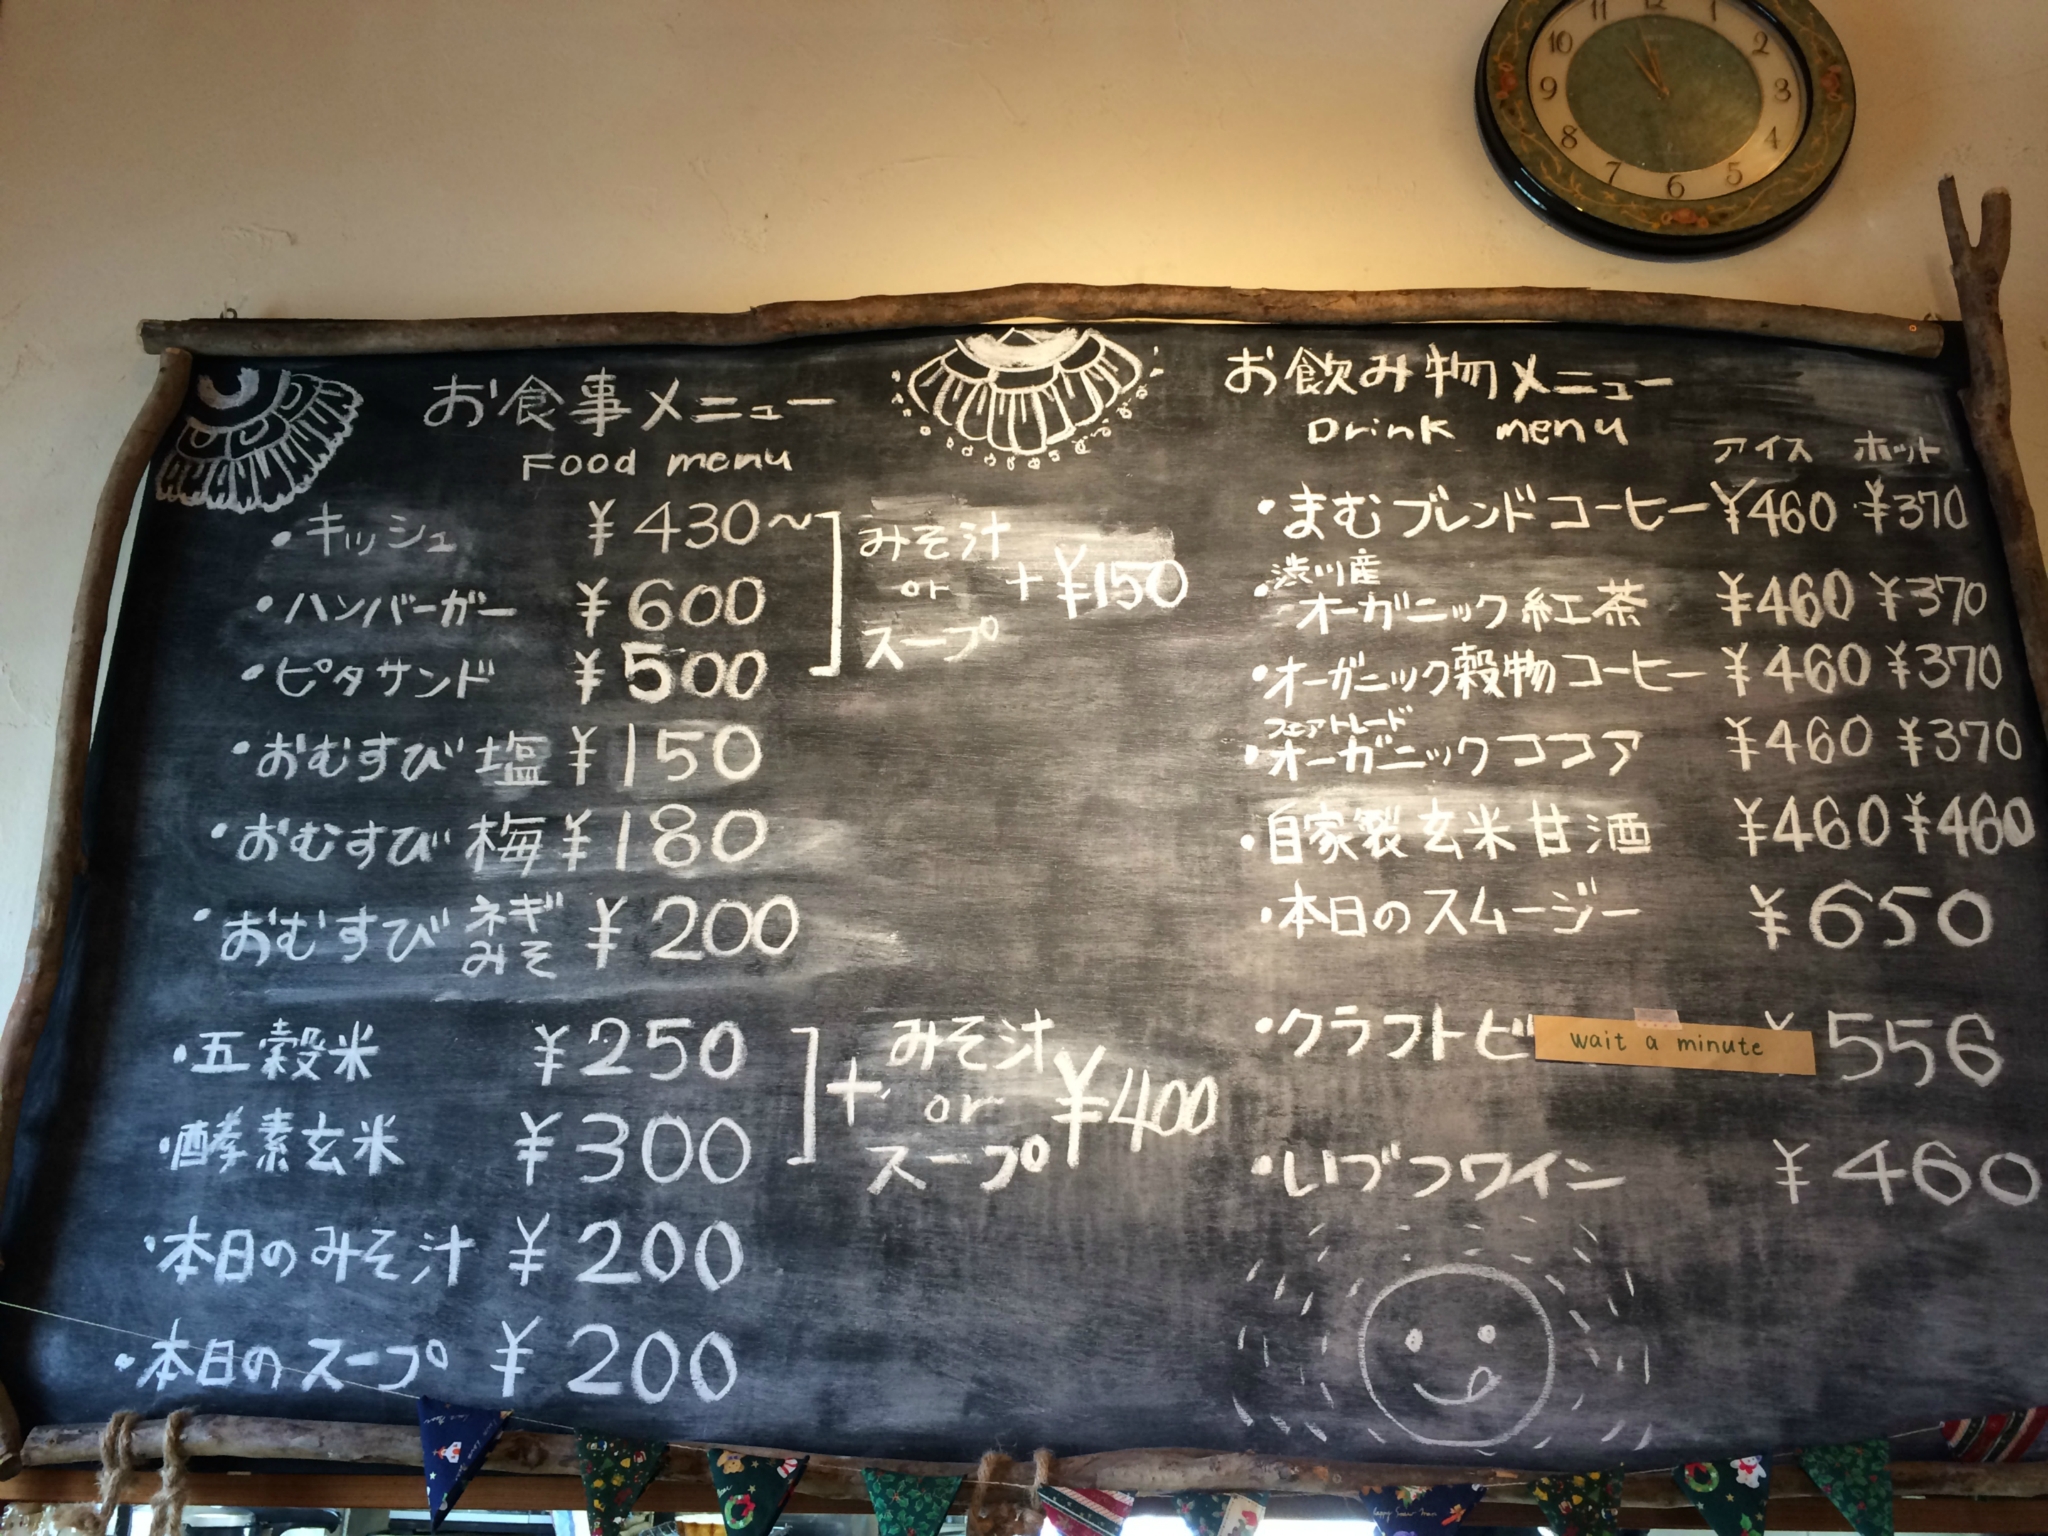 お食事メニュー
Food menu
・キッシュ ¥430〜
・ハンバーガー ¥600
・ピタサンド ¥500
みそ汁
or
スープ
+¥150
・おむすび 塩 ¥150
・おむすび 梅 ¥180
・おむすび ネギみそ ¥200
・五穀米 ¥250
・酵素玄米 ¥300
+
みそ汁
or
スープ
¥400
・本日のみそ汁 ¥200
・本日のスープ ¥200
お飲み物メニュー
Drink menu
アイス ホット
・まむブレンドコーヒー ¥460 ¥370
渋川産
・オーガニック紅茶 ¥460 ¥370
・オーガニック穀物コーヒー ¥460 ¥370
フェアトレード
・オーガニックココア ¥460 ¥370
・自家製玄米甘酒 ¥460 ¥460
・本日のスムージー ¥650
・クラフトビ wait a minute ¥556
・いづつワイン ¥460
11 12 1
10 2
9 3
8 4
7 6 5